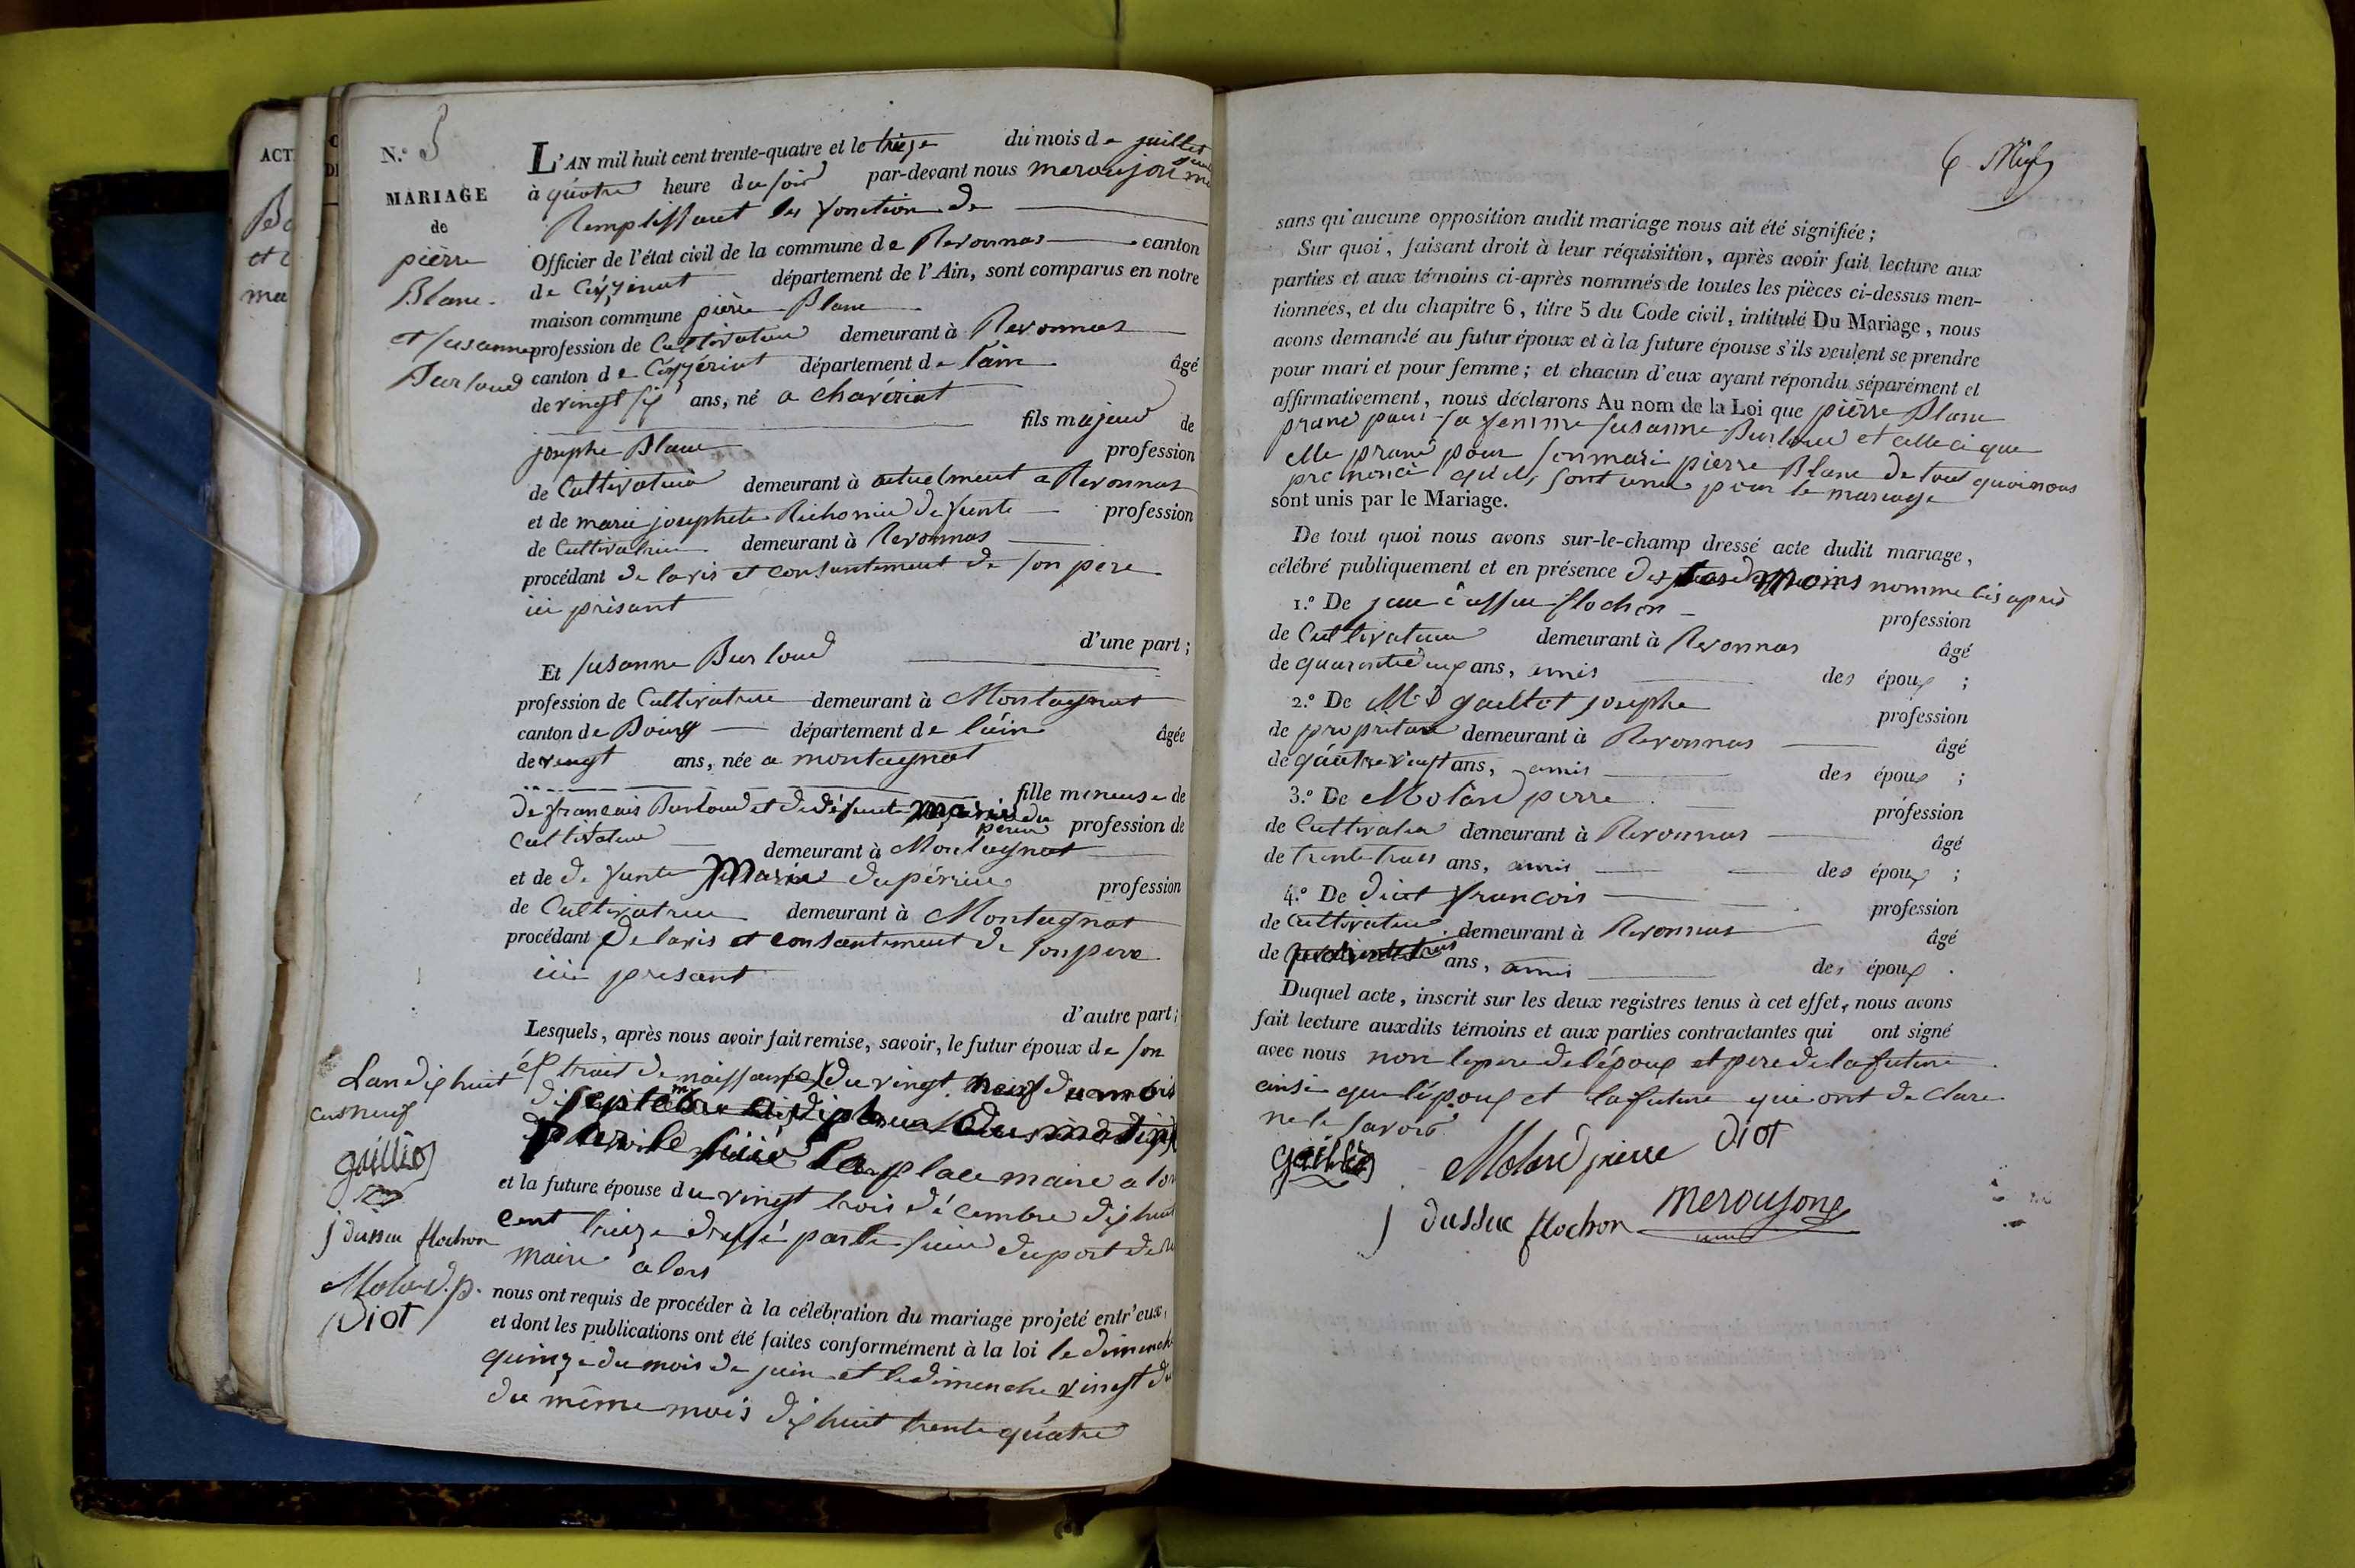 ACT
N.º 5
MARIAGE
de
pièrre
Blanc
et susanne
Burloud
L'AN mil huit cent trente-quatre et le treize du mois de juillet
à quatre heure du soir par-devant nous
Remplissant les fonction de
Officier de l'état civil de la commune de Revonnas canton
de Ceyzériat département de l'Ain, sont comparus en notre
maison commune pièrre Blanc
profession de Cultivateur demeurant à Revonnas
canton de Ceyzériat département de l'ain âgé
de vingt six ans, né a chavériat
fils majeur de
josephe Blanc profession
de Cultivateur demeurant à actuelment a Revonnas
et de marie josephete de funte profession
de Cultivatrice demeurant à Revonnas
procédant de lavis et consantement de son père
ici présant
d'une part ;
Et susanne Burloud
profession de Cultivatrice demeurant à Montagnat
canton de Bourg département de l'ain âgée
de vingt ans, née a montagnat
fille mineuse de
de francais Burloud et de défunte marie du
perier profession de
Cultivateur demeurant à Montagnat
et de de funte Marie dupérier profession
de Cultivatrice demeurant à Montagnat
procédant de lavis et consantement de son pere
ici presant
d'autre part ;
Lesquels, après nous avoir fait remise, savoir, le futur époux de son
extrait de naissance du vingt neuf du mois
de septembre a dix heur du matin
par le place maire a lor
et la future épouse du vingt trois décembre dix huit
cent treize dressé par le sieur duport de
maire alors
Lan dix huit
cus neuf
j dussuc flochon
Molard. p.
Diot
nous ont requis de procéder à la célébration du mariage projeté entr'eux,
et dont les publications ont été faites conformément à la loi le dimenche
quinze du mois de juin et le dimenche vingt d
du même mois dix huit trente quatre
6
sans qu'aucune opposition audit mariage nous ait été signifiée ;
Sur quoi, faisant droit à leur réquisition, après avoir fait lecture aux
parties et aux témoins ci-après nommés de toutes les pièces ci-dessus men-
tionnées, et du chapitre 6, titre 5 du Code civil, intitulé Du Mariage, nous
avons demandé au futur époux et à la future épouse s'ils veulent se prendre
pour mari et pour femme ; et chacun d'eux ayant répondu séparément et
affirmativement, nous déclarons Au nom de la Loi que pièrre Blanc
prand pour sa femme susanne Burloud et celle ci que
elle prand pour son mari pierre Blanc de tout quoi nous
prononcé qu'ils sont unis par le mariage
sont unis par le Mariage.
De tout quoi nous avons sur-le-champ dressé acte dudit mariage,
célébré publiquement et en présence des temoins nomme cis après
1.º De flochon profession
de Cultivateur demeurant à Revonnas âgé
de ans, amis des époux ;
2.º De josephe profession
de propritaire demeurant à Revonnas âgé
de quatre vingt ans, amis des époux ;
3.º De Molard perre profession
de Cultivateur demeurant à Revonnas âgé
de trente trois ans, amis des époux ;
4.º De diot francois profession
de Cultivateur demeurant à Revonnas âgé
de ans, amis des époux .
Duquel acte, inscrit sur les deux registres tenus à cet effet, nous avons
fait lecture auxdits témoins et aux parties contractantes qui ont signé
avec nous non le pere de l'époux et pere de la future
ainsi que l'époux et la future qui ont de clare
ne le savoir
Molard pierre Diot
j dussuc flochon